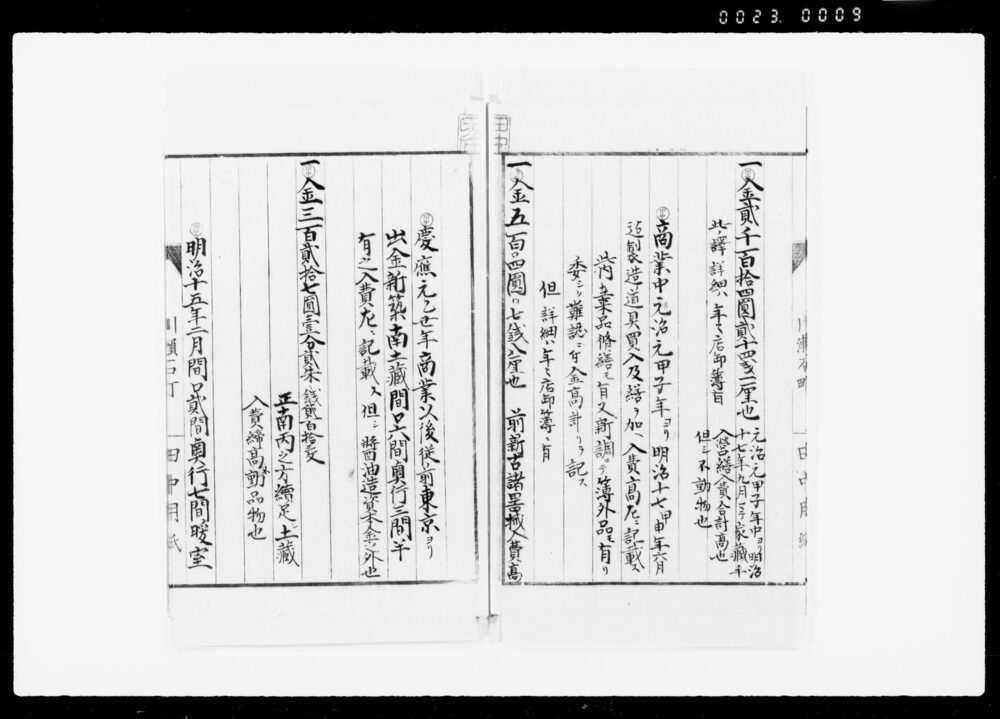 0023.0009
一入金貳千百拾四圓貳十四戋二厘也
元治元甲子年中ヨリ明治
十七年九月迠家藏
入営繕入費合計高也
但シ不動物也
此ノ譯詳細ハ年々店卸簿ニ有
商業中元治元甲子年ヨリ明治十七甲申年六月
迠製造道具買入及繕ヲ加ヘ入費高左ニ記載ス
此内ニ棄品脩繕モ有又新調ニテ簿外品モ有リ
委シク難誌ニ付金高計リヲ記ス
但詳細ハ年々店卸簿ニ有
一入金五百〇四圓〇七銭八厘也 前新古諸器械入費高
慶應元乙丑年商業以後従前東京ヨリ
出金新築南土藏間口六間奥行三間半
有之入費左ニ記載ス但シ醤油造資本金ノ外也
一入金三百貳拾七圓壹分貳朱 銭貳百拾文
正南丙之方續足シ土藏
入費締高不動品物也
明治十五年二月間口貳間奥行七間暖室
川瀬石町 田中用紙